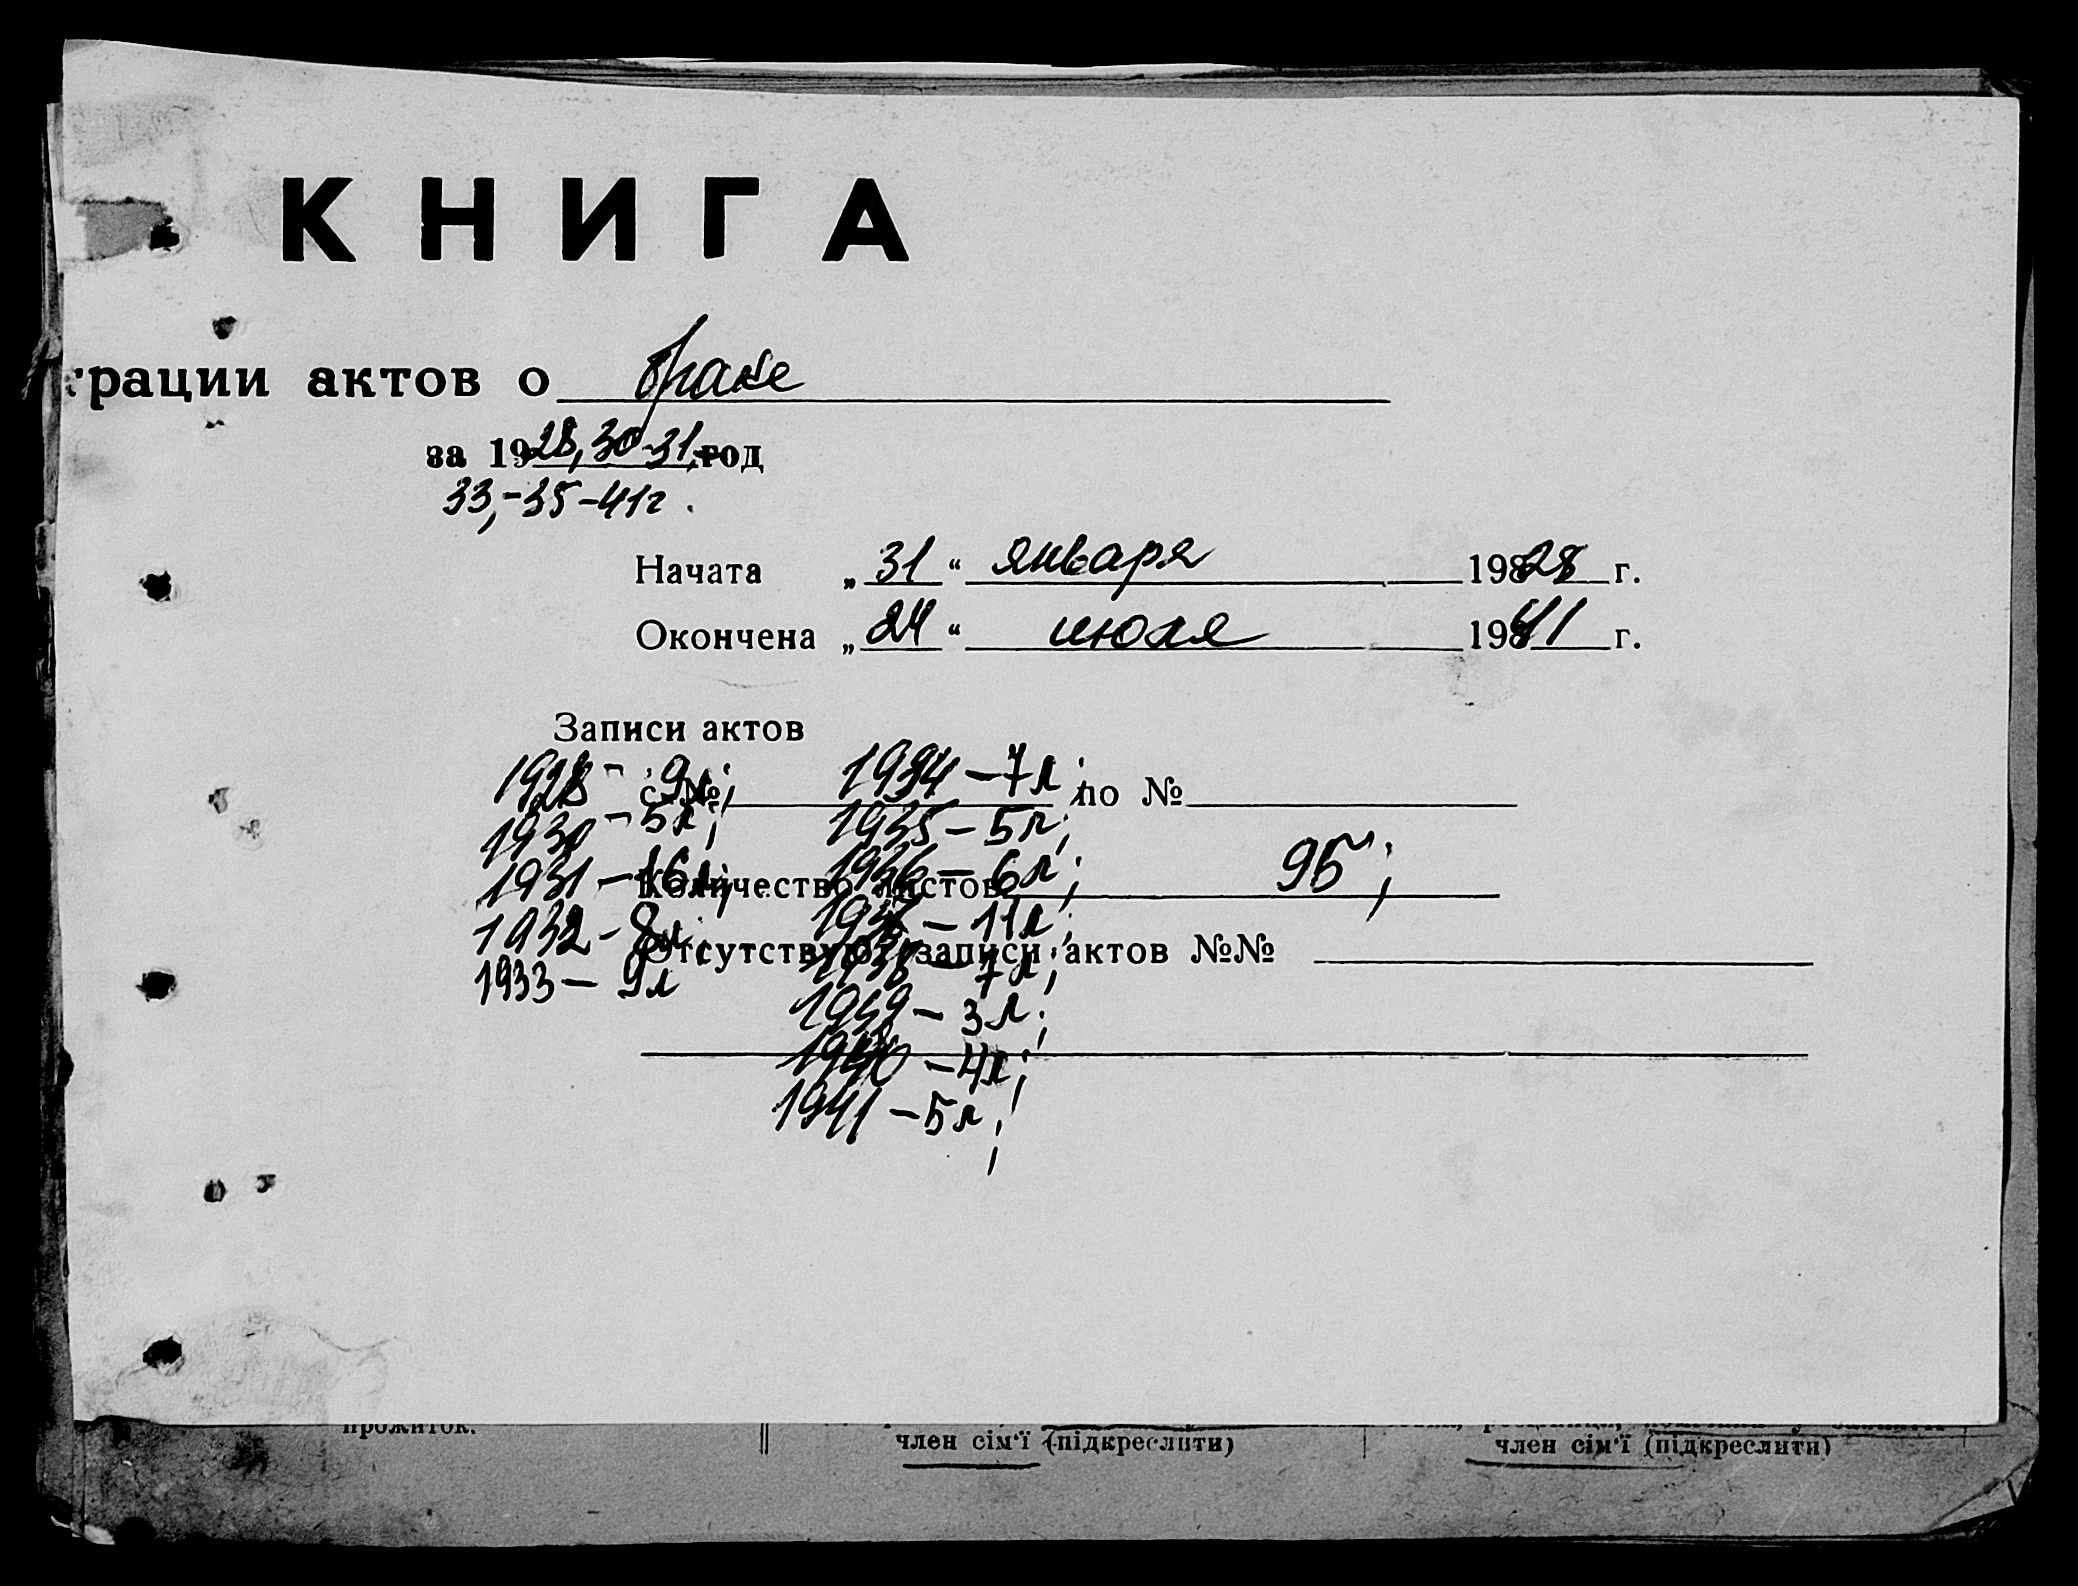 КНИГА
трации актов о браке
за 1928, 30-31, год
33,-35-41г.
Начата „31“ января 1928 г.
Окончена „24“ июля 1941 г.
Записи актов
1928 - 9л; 1934 - 7л;
с № по №
1930 - 5л; 1935 - 5л;
1931 - 16л; 1936 - 6л;
Количество листов 95;
1932 - 8л. 1937 - 11л;
Отсутствуют записи актов №№
1933 - 9л 1938 - 7л;
1939 - 3л;
1940 - 4л;
1941 - 5л;
прожиток.
член сім'ї (підкреслити) член сім'ї (підкреслити)